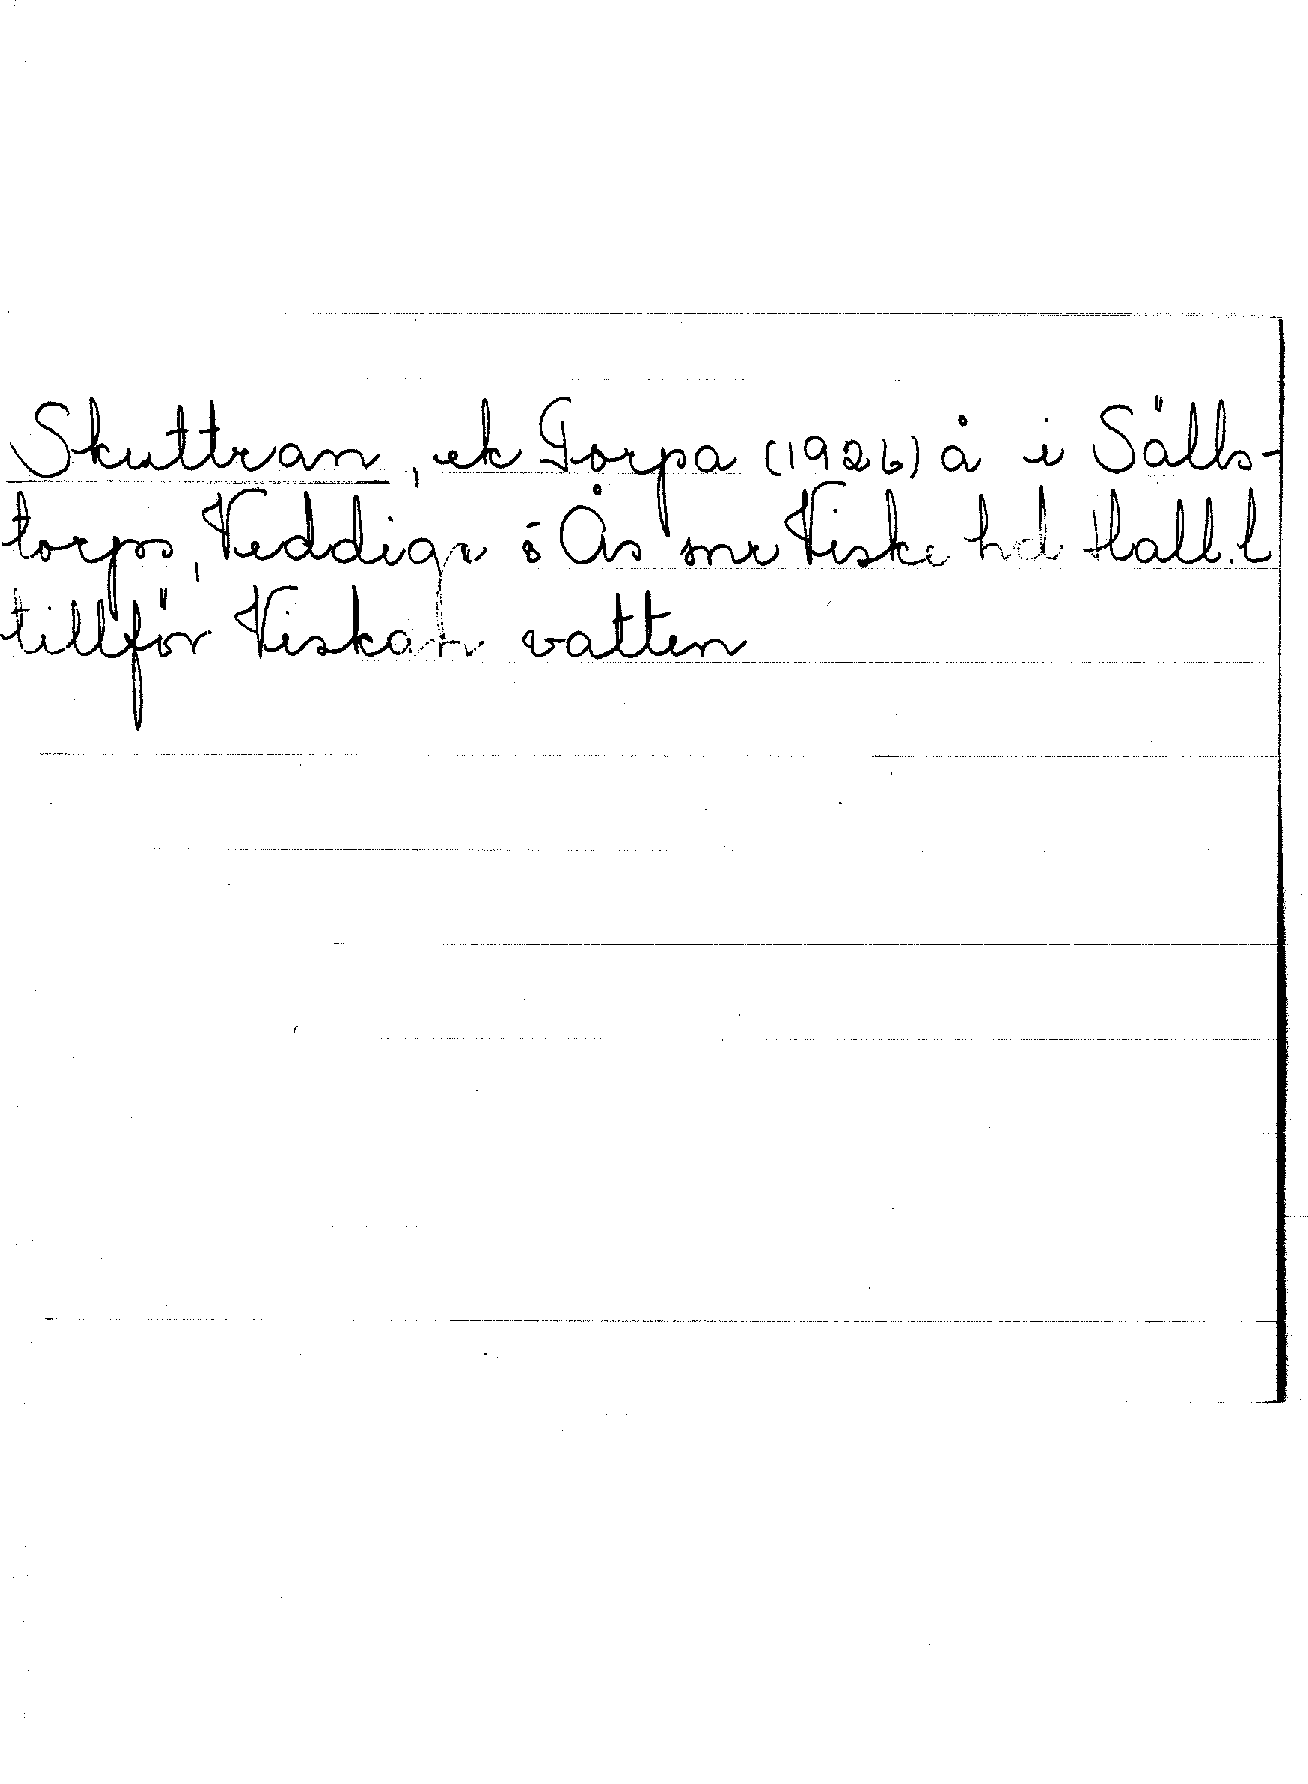 Skuttran, ek Torpa (1926) å i Sälls-
torps, Veddige o Ås snr Viske hd Hall.l
tillför Viskan vatten